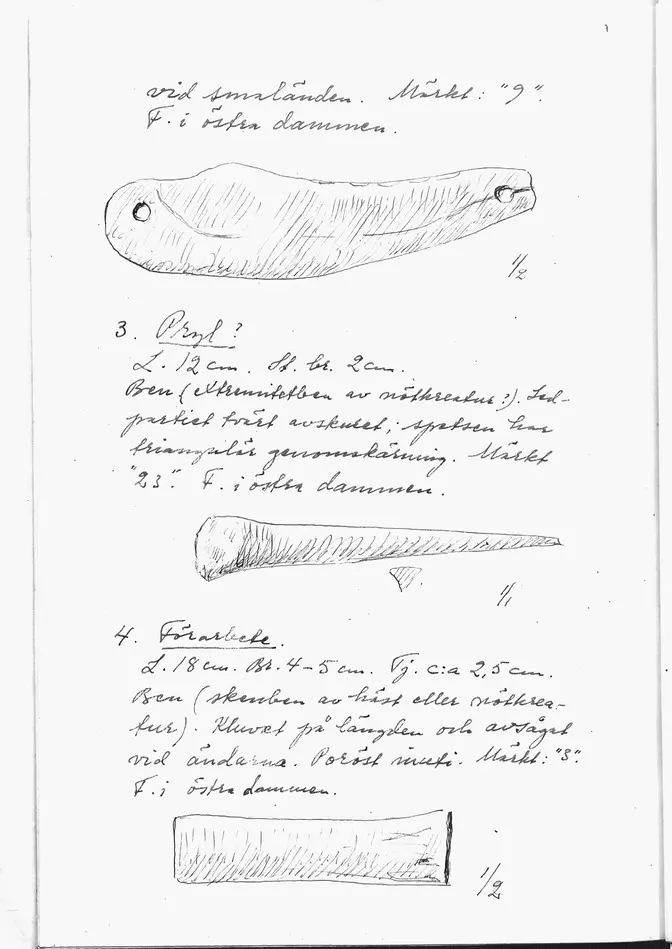 vid smaländen. Märkt: "9".
F. i östra dammen.
1/2
3. Pryl?
L. 12 cm. St. br. 2 cm.
Ben (extremitetben av nötkreatur?). Led-
partiet tvärt avskuret, spetsen har
triangulär genomskärning. Märkt
"23". F. i östra dammen.
1/1
4. Förarbete.
L. 18 cm. Br. 4-5 cm. Tj. c:a 2,5 cm.
Ben (skenben av häst eller nötkrea-
tur). Kluvet på längden och avsågat
vid ändarna. Poröst inuti. Märkt: "3".
F. i östra dammen.
1/2